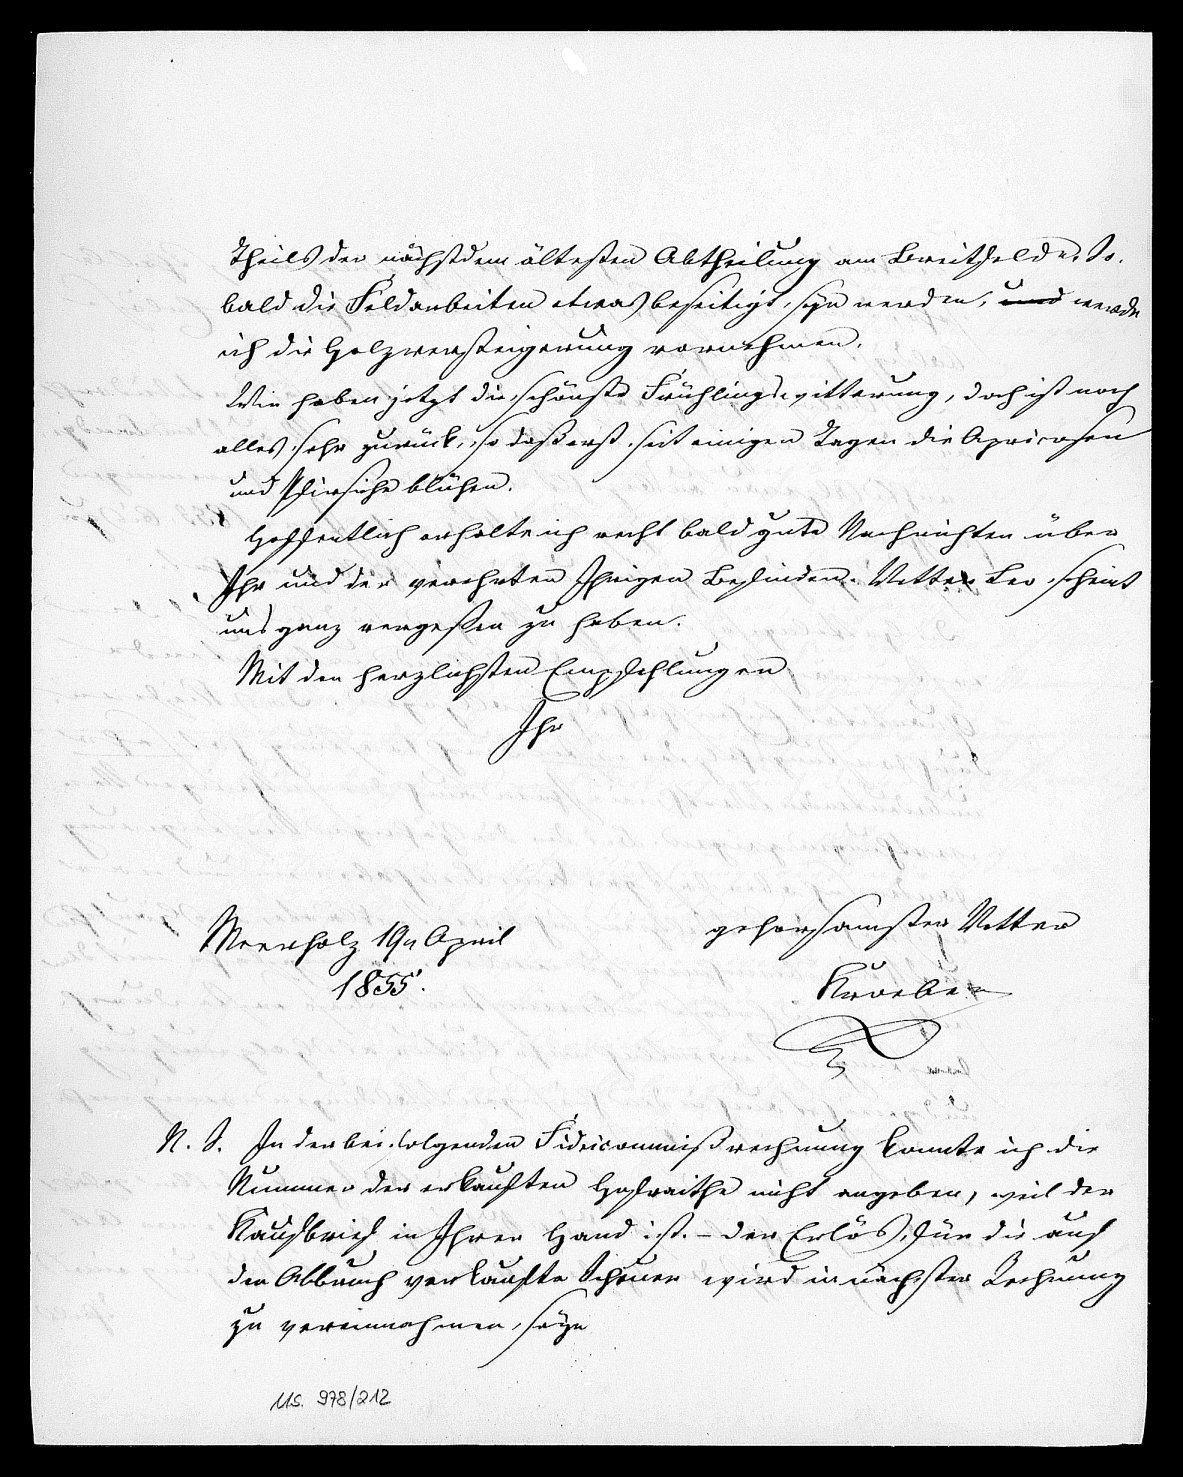 Theils der nächstdem ältesten Abtheilung am Breitefelde. So-
bald die Feldarbeiten etwas beseitigt seyn werden, und werde
ich die Holzversteigerung vornehmen.
Wir haben jetzt die schönste Frühlingswitterung, doch ist noch
alles sehr zurück, so daß erst seit einigen Tagen die Apricosen
und Pfirsiche blühen.
Hoffentlich erhalte ich recht bald gute Nachrichten über
Ihr und der verehrten Ihrigen Befinden. Vetter Leo scheint
uns ganz vergeßen zu haben.
Mit den herzlichsten Empfehlungen
Ihr
gehorsamster Vetter
Meerholz 19n April
1855.
Kroeber
N. S. In der beifolgenden Fideicommißrechnung konnte ich die
Nummer der erkauften Hofraithe nicht angeben, weil der
Kaufbrief in Ihrer Hand ist. – Der Erlös für die auf
den Abbruch verkaufte Scheuer wird in nächster Rechnung
zu vereinnahmen seyn
Ms. 978/212